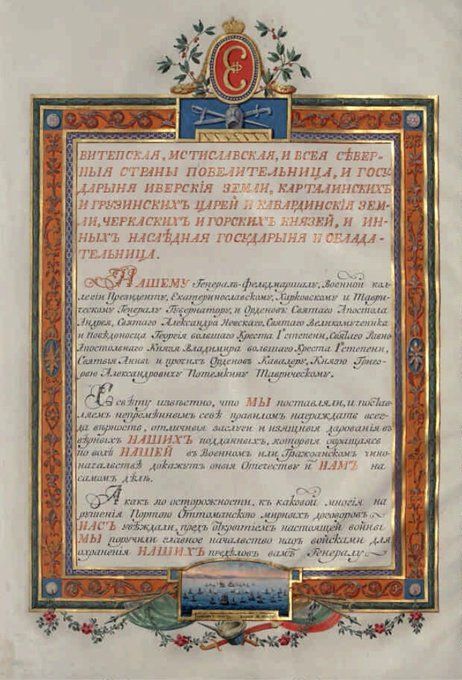 Е
ВИТЕПСКАЯ, МСТИСЛАВСКАЯ, И ВСЕЯ СѢВЕР-
НЫЯ СТРАНЫ ПОВЕЛИТЕЛЬНИЦА, И ГОСУ-
ДАРЫНЯ ИВЕРСКІЯ ЗЕМЛИ, КАРТАЛИНСКИХЪ
И ГРУЗИНСКИХЪ ЦАРЕЙ И КАБАРДИНСКІЯ ЗЕМ-
ЛИ, ЧЕРКАСКИХЪ И ГОРСКИХЪ КНЯЗЕЙ, И ИН-
НЫХЪ НАСЛѢДНАЯ ГОСУДАРЫНЯ И ОБЛАДА-
ТЕЛЬНИЦА.
НАШЕМУ Генералъ-Фельдмаршалу, Военной кол-
легіи Президенту, Екатеринославскому, Харковскому и Таври-
ческому Генералу Губернатору, и Орденовъ Святаго Апостола
Андрея, Святаго Александра Невскаго, Святаго Великомученика
и Побѣдоносца Георгія большаго Креста I степени, Святаго Равно
Апостольнаго Князя Владимира большаго Креста I степени,
Святыя Анны и прочихъ Орденовъ Кавалеру, Князю Григо-
рью Александровичу Потемкину Таврическому.
Всѣму извѣстно, что МЫ поставляли, и постав-
ляемъ непремѣннымъ себѣ правиломъ награждать всег-
да вѣрность, отличныя заслуги и изящныя дарованія въ
вѣрныхъ НАШИХЪ подданныхъ, которыя обращаяся
по волѣ НАШЕЙ въ Военномъ или Гражданскомъ чино-
начальствѣ докажутъ оныя Отечеству и НАМЪ на
самомъ дѣлѣ.
А какъ по осторожности, къ каковой многія на-
рушенія Портою Оттоманскою мирныхъ договоровъ
НАСЪ убѣждали, предъ открытіемъ настоящей войны
МЫ поручили главное начальство надъ войсками для
охраненія НАШИХЪ предѣловъ вамъ Генералу